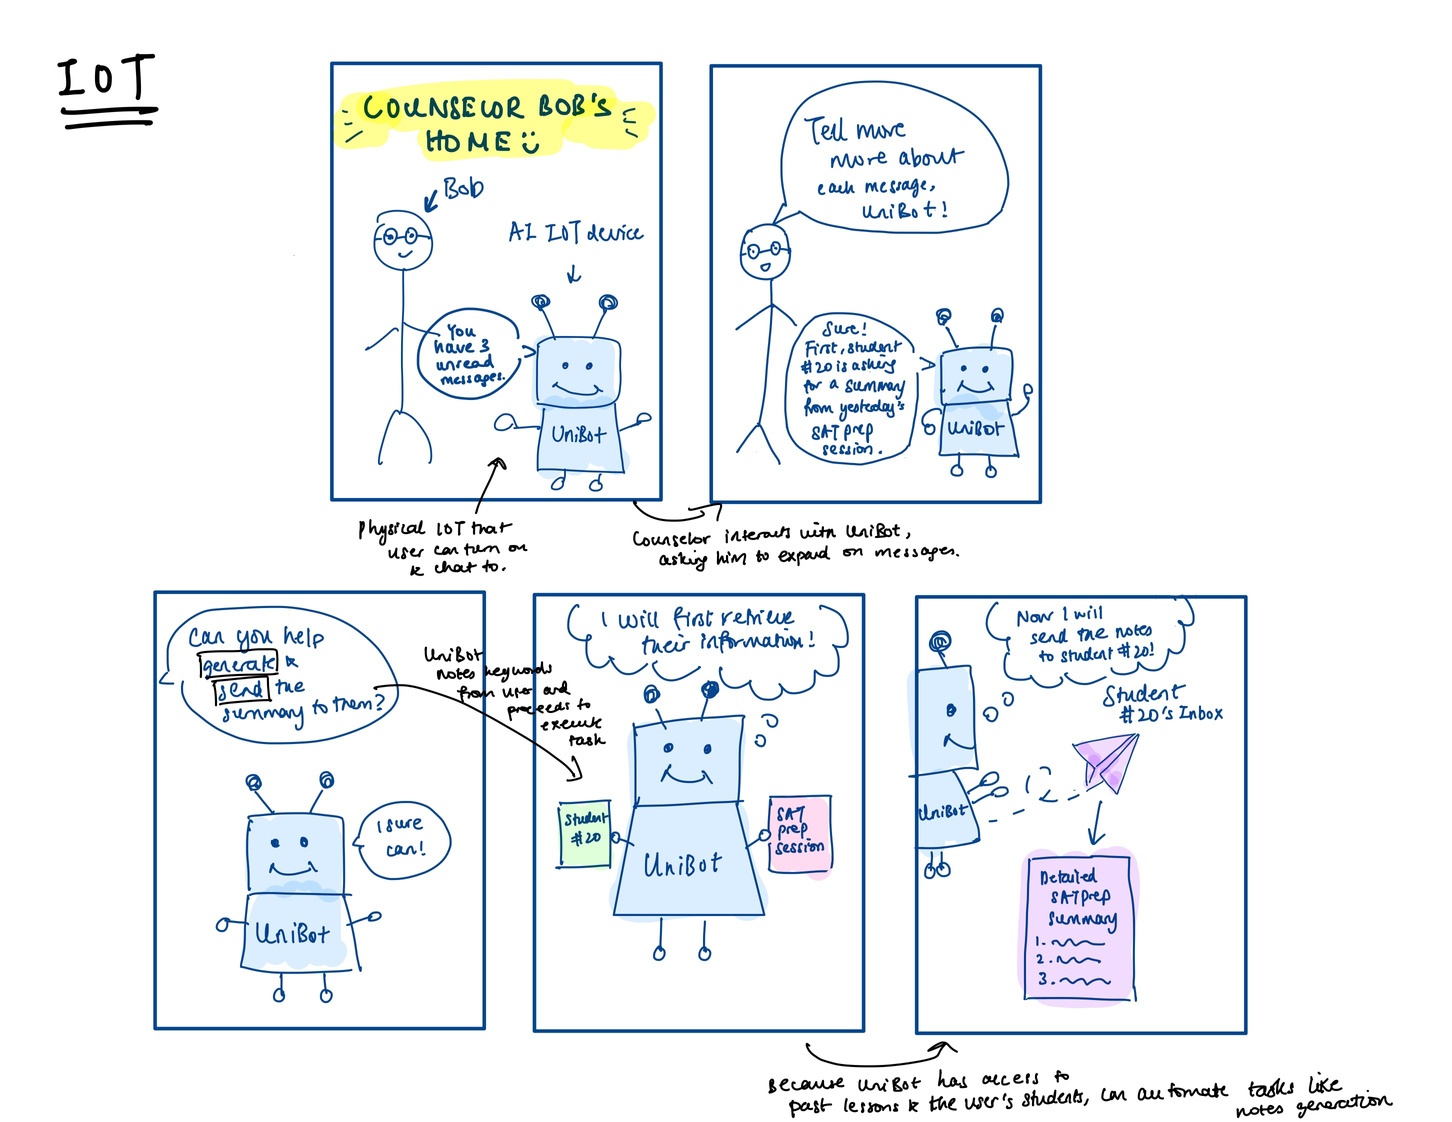 IOT
COUNSELOR BOB'S
HOME
Bob
AI IOT device
You
have 3
unread
messages.
UniBot
Physical IOT that
user can turn on
& chat to.
Tell more
more about
each message,
UniBot!
Sure!
First, student
#20 is asking
for a summary
from yesterday's
SAT prep
session.
UniBot
Counselor interacts with UniBot,
asking him to expand on messages.
Can you help
generate &
send the
summary to them?
I sure
can!
UniBot
UniBot
notes keywords
from user and
proceeds to
execute
task
I will first retrieve
their information!
Student
#20
SAT
prep
session
UniBot
Now I will
send the notes
to student #20!
Student
#20's Inbox
UniBot
Detailed
SAT Prep
Summary
1.
2.
3.
Because UniBot has access to
past lessons & the user's students, can automate tasks like
notes generation